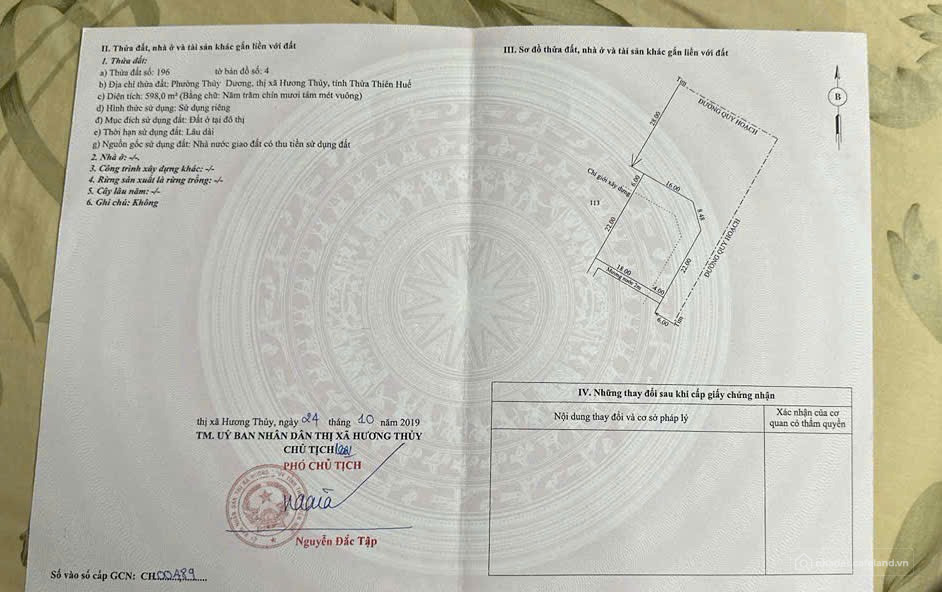 II. Thửa đất, nhà ở và tài sản khác gắn liền với đất
1. Thửa đất:
a) Thửa đất số: 196 tờ bản đồ số: 4
b) Địa chỉ thửa đất: Phường Thủy Dương, thị xã Hương Thủy, tỉnh Thừa Thiên Huế
c) Diện tích: 598,0 m² (Bằng chữ: Năm trăm chín mươi tám mét vuông)
d) Hình thức sử dụng: Sử dụng riêng
đ) Mục đích sử dụng đất: Đất ở tại đô thị
e) Thời hạn sử dụng đất: Lâu dài
g) Nguồn gốc sử dụng đất: Nhà nước giao đất có thu tiền sử dụng đất
2. Nhà ở: -/-
3. Công trình xây dựng khác: -/-
4. Rừng sản xuất là rừng trồng: -/-
5. Cây lâu năm: -/-
6. Ghi chú: Không
thị xã Hương Thủy, ngày 24 tháng 10 năm 2019
TM. UỶ BAN NHÂN DÂN THỊ XÃ HƯƠNG THỦY
CHỦ TỊCH
PHÓ CHỦ TỊCH
Nguyễn Đắc Tập
Số vào sổ cấp GCN: CH00489
III. Sơ đồ thửa đất, nhà ở và tài sản khác gắn liền với đất
B
Tim
ĐƯỜNG QUY HOẠCH
28.00
Chỉ giới xây dựng
6.00
16.00
113
8.48
22.00
22.00
ĐƯỜNG QUY HOẠCH
18.00
Mương nước 2m
4.00
6.00
Tim
IV. Những thay đổi sau khi cấp giấy chứng nhận
Nội dung thay đổi và cơ sở pháp lý
Xác nhận của cơ
quan có thẩm quyền